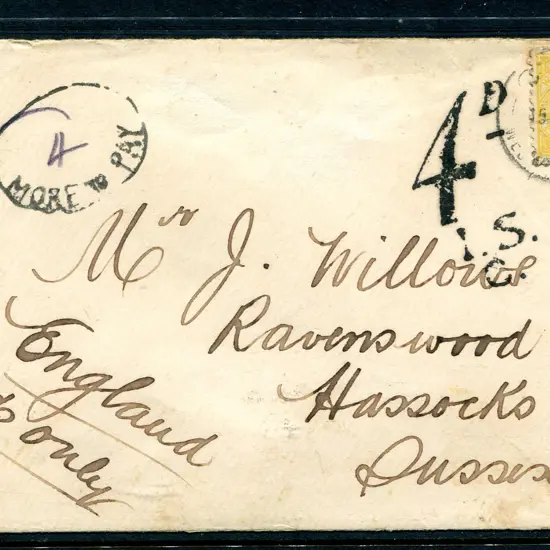 4
MORE to PAY
4D
I.S.
C.
Mr J. Willows
Ravenswood
Hassocks
Sussex
England
only